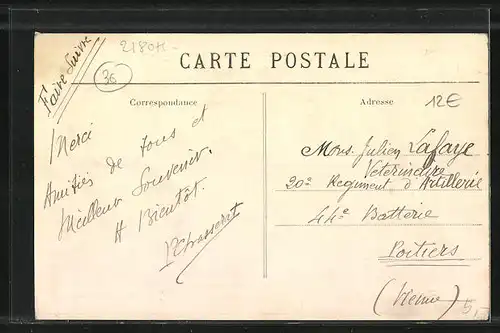 Faire Suivre
2180K
36
CARTE POSTALE
Correspondance
Adresse
12€
Merci
Amitiés de tous et
Meilleur Souvenir.
A Bientôt.
Mons. Julien Lafaye
Veterinaire
20e Regiment d'Artillerie
44e Batterie
Poitiers
(Vienne)